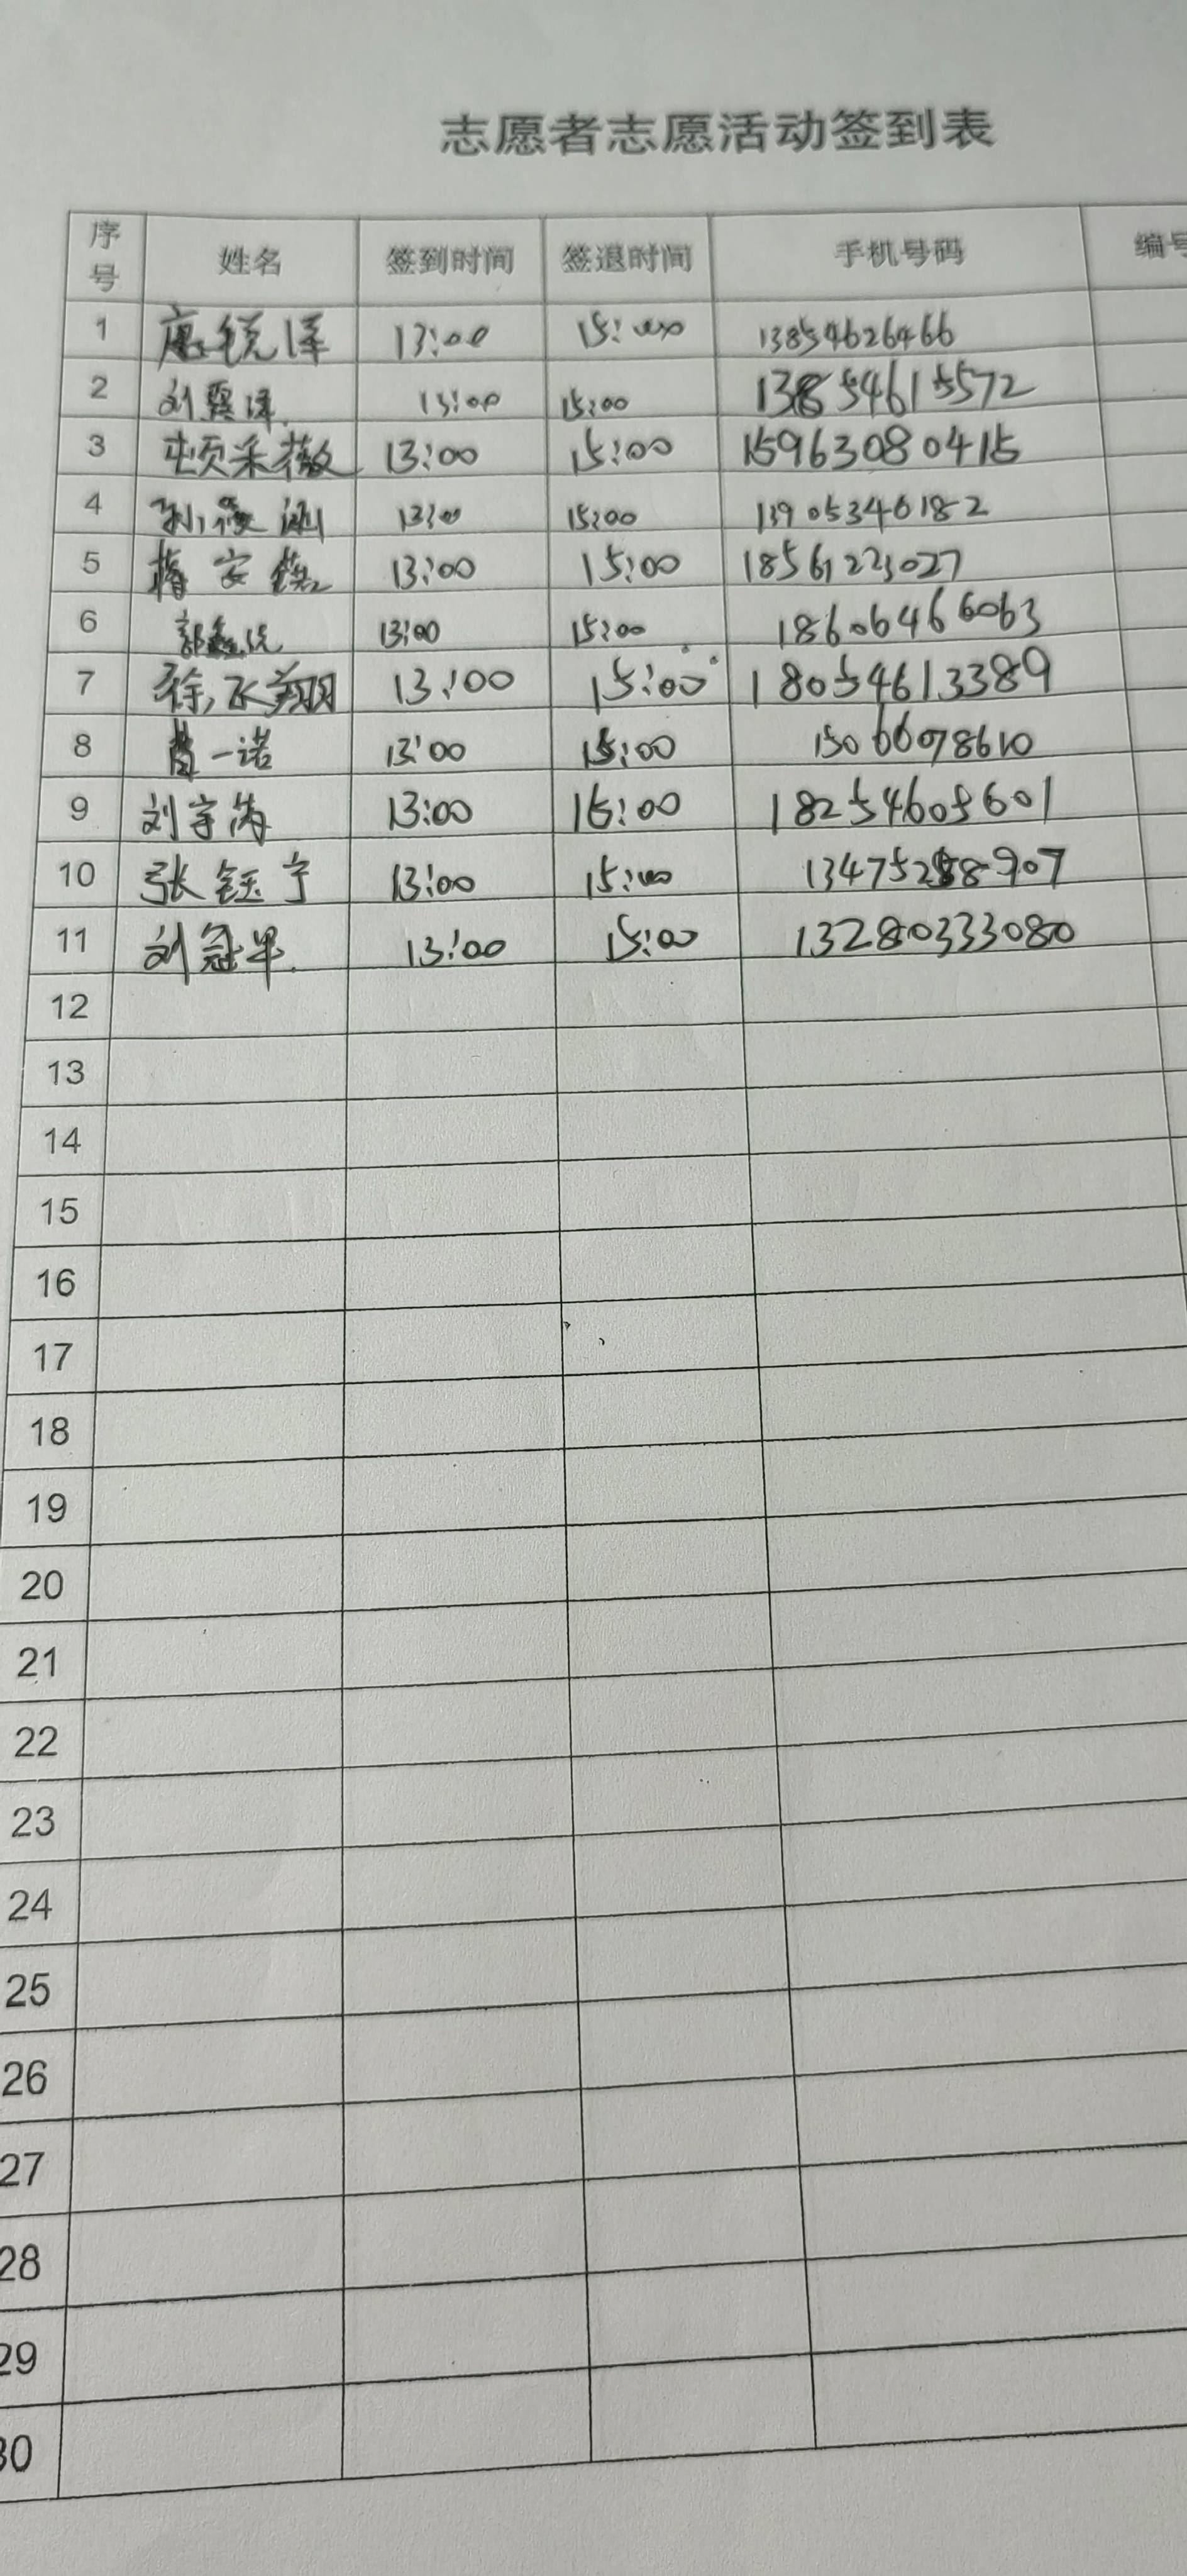 志愿者志愿活动签到表
序号 姓名 签到时间 签退时间 手机号码 编号
1 唐锐泽 13:00 15:00 13854626466
2 刘翼泽 13:00 15:00 13854615572
3 采薇 13:00 15:00 15963080415
4 孙 涵 13:00 15:00 13905346182
5 安 13:00 15:00 18561223027
6 郭鑫 13:00 15:00 18606466063
7 徐飞翔 13:00 15:00 18054613389
8 一诺 13:00 15:00 15066078610
9 刘宇 13:00 15:00 18254605601
10 张钰宁 13:00 15:00 907
11 刘冠军 13:00 15:00 13280333080
12
13
14
15
16
17
18
19
20
21
22
23
24
25
26
27
28
29
30